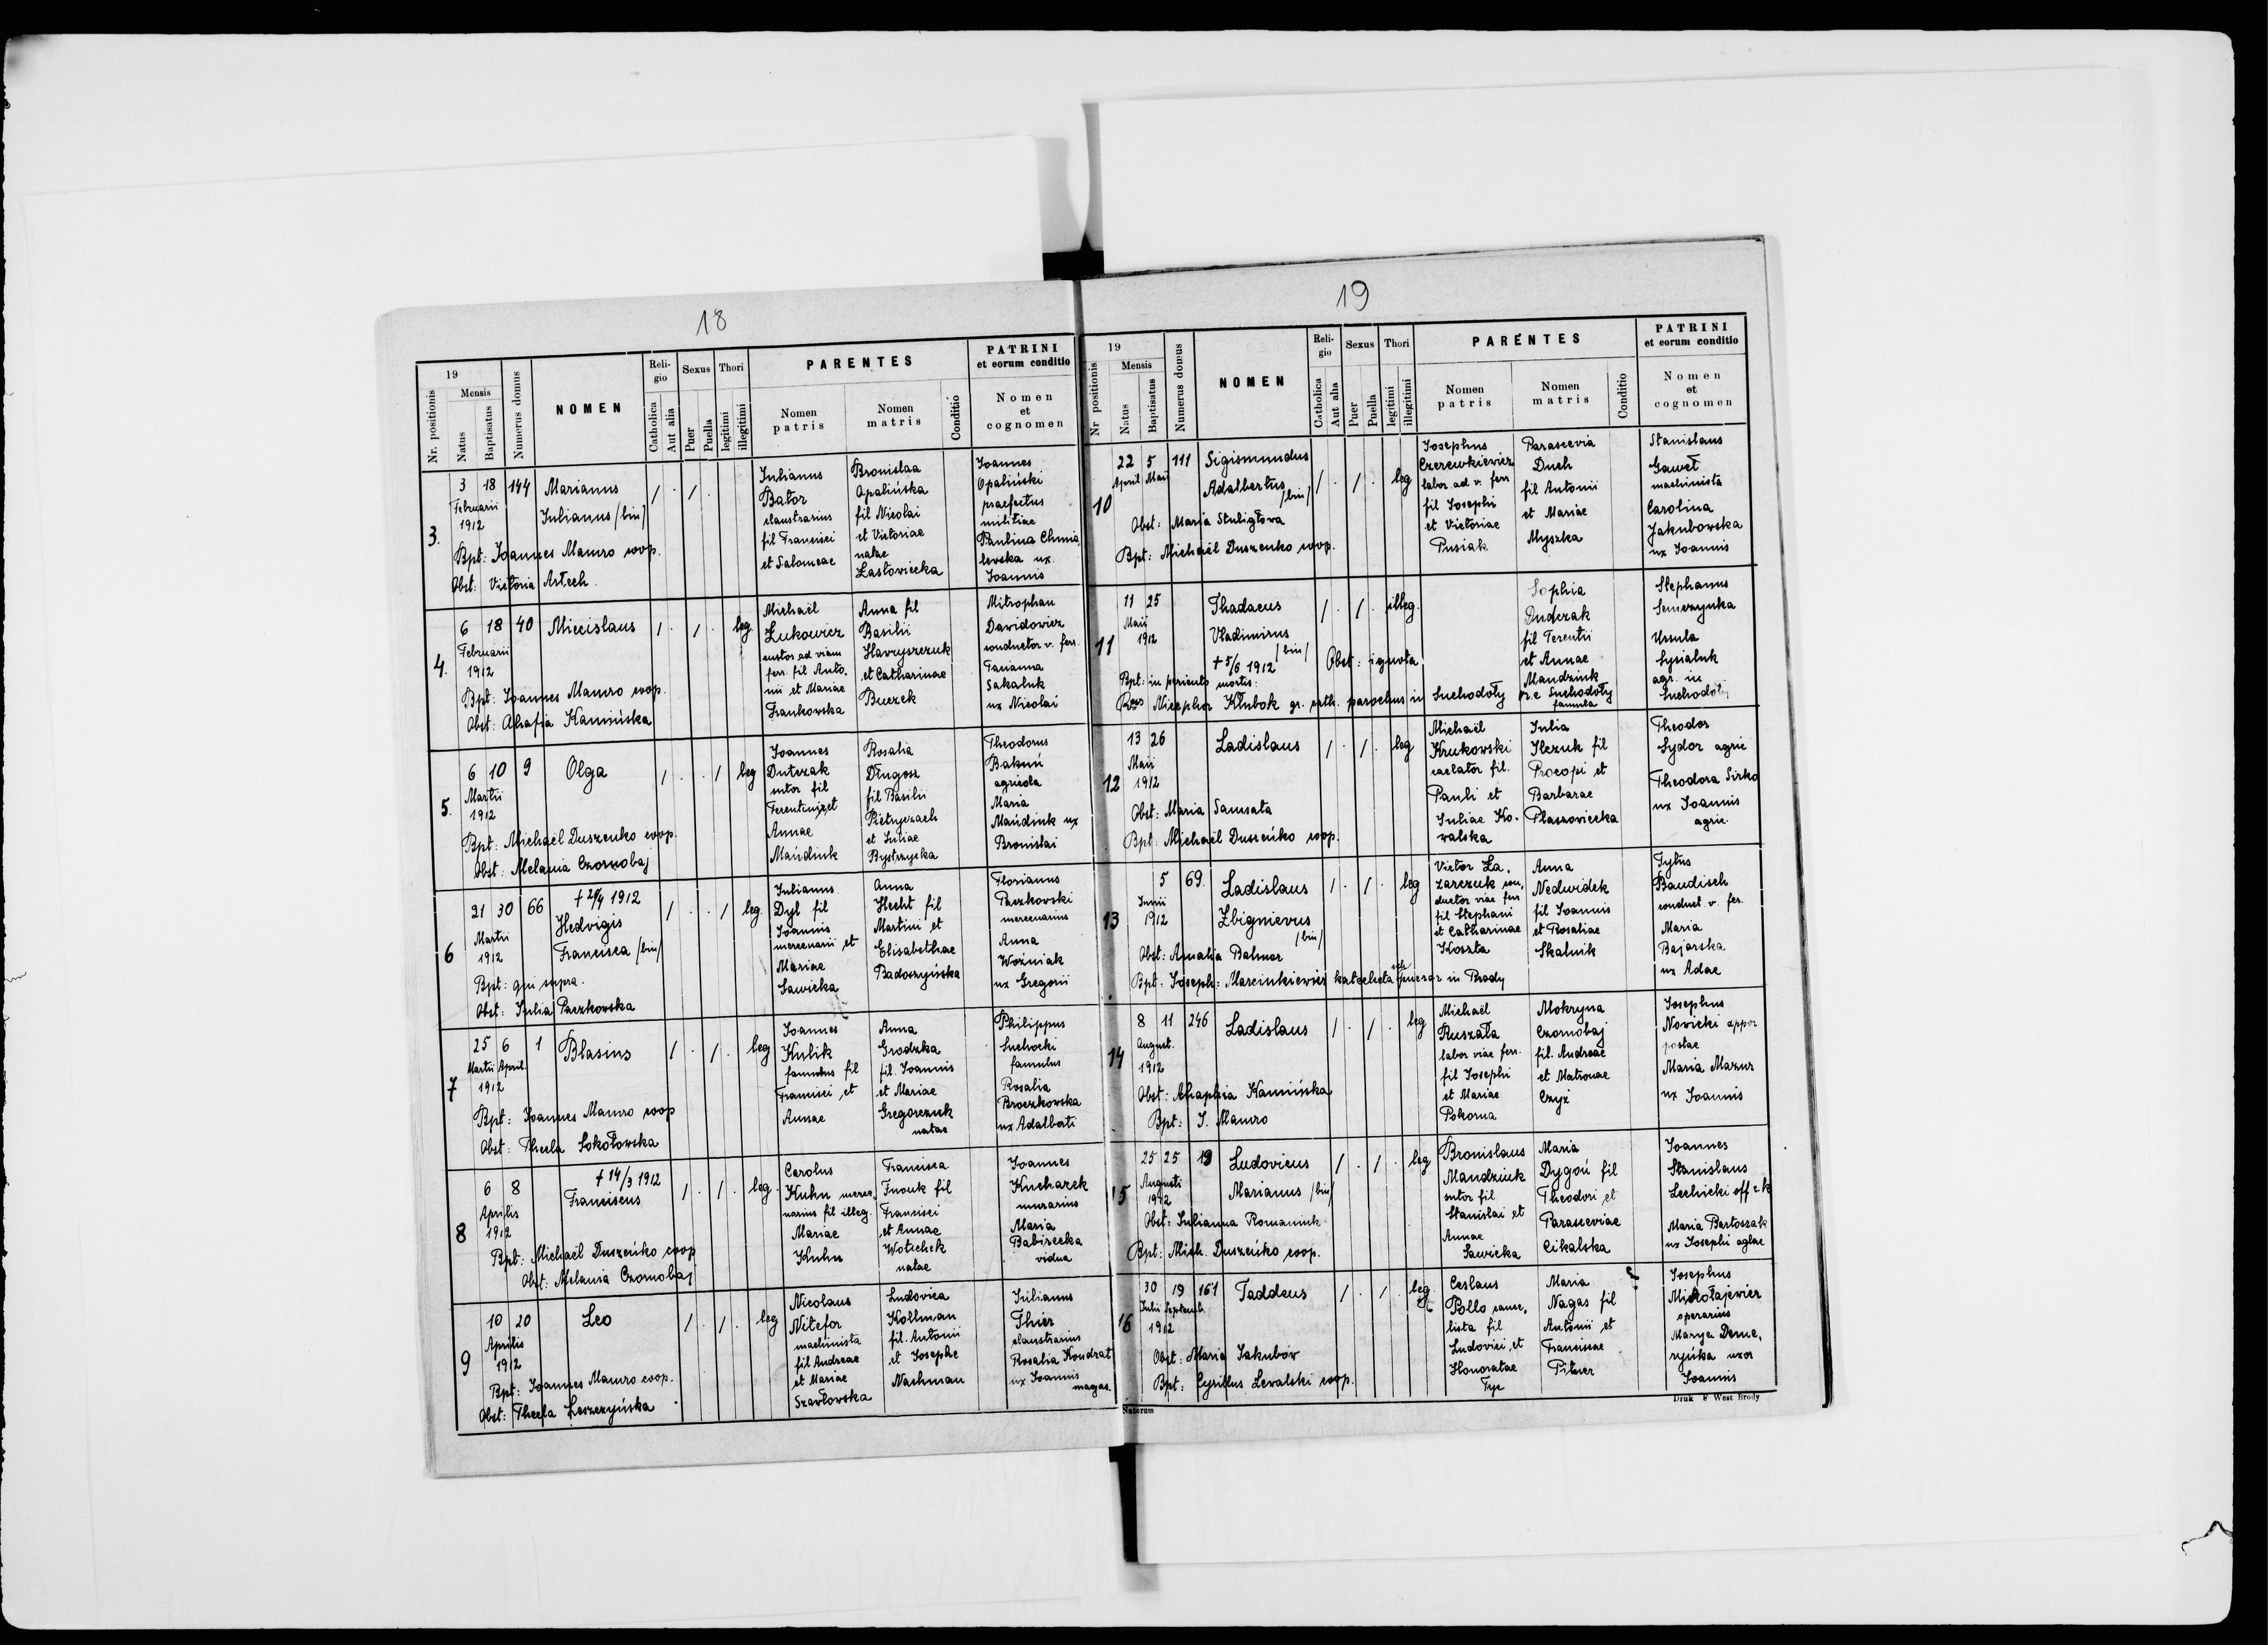 18
19
Nr. positionis
Mensis
Natus
Baptisatus
Numerus domus
NOMEN
Reli-
gio
Catholica
Aut alia
Sexus
Puer
Puella
Thori
legitimi
illegitimi
PARENTES
Nomen
patris
Nomen
matris
Conditio
PATRINI
et eorum conditio
Nomen
et
cognomen
3.
3 18 144
Februarii
1912
Marianus
Iulianus /bin/
/ . / .
Iulianus
Bator
claustrarius
fil Francisci
et Salomeae
Bronislaa
Opalińska
fil Nicolai
et Victoriae
natae
Zastoviecka
Ioannes
Opaliński
praefectus
militiae
Paulina Chmie
levska ux.
Ioannis
Bpt: Ioannes Mauro coop.
Obst: Victoria Astech.
4.
6 18 40
Februarii
1912
Miecislaus
/ . / . leg
Michaël
Żukowicz
custos ad viam
ferr. fil Anto.
nii et Mariae
Frankovska
Anna fil
Basilii
Havryszczuk
et Catharinae
Buczek
Mitrophan
Davidovicz
conductor v. ferr.
Tacianna
Sakaluk
ux Nicolai
Bpt: Ioannes Mauro coop.
Obst: Ahafia Kamińska
5.
6 10 9
Martii
1912
Olga
/ . . / leg
Ioannes
Dutczak
sutor fil
Terentiusz et
Annae
Mańdiuk
Rosalia
Długosz
fil Basilii
Pietryczach
et Iuliae
Bystrzycka
Theodorus
Bakuń
agricola
Maria
Mańdiuk ux
Bronislai
Bpt: Michaël Duszenko coop.
Obst: Melania Czornobaj
6
21 30 66
Martii
1912
+ 24/4 1912
Hedvigis
Francisca /bin/
/ . . / leg.
Iulianus
Dyl fil
Ioannis
mercenarii et
Mariae
Sawicka
Anna
Hecht fil
Martini et
Elisabethae
Badoszyńska
Florianus
Paczkovski
mercenarius
Anna
Woźniak
ux Gregorii
Bpt: qui supra.
Obst: Iulia Paczkovska
7
25 6 1
Martii April.
1912
Blasius
/ . / . leg
Ioannes
Kulik
famulus fil
Francisci et
Annae
Anna
Grodzka
fil. Ioannis
et Mariae
Gregorczuk
natae
Philippus
Suchocki
famulus
Rosalia
Broczkovska
ux Adalberti
Bpt: Ioannes Mauro coop
Obst: Thecla Sokołowska
8
6 8
Aprilis
1912
+ 14/3 1912
Franciscus
/ . / . leg.
Carolus
Kuhn merce,
narius fil illeg.
Mariae
Kuhn
Francisca
Jnouk fil
Francisci
et Annae
Wotschek
natae
Ioannes
Kucharek
murarius
Maria
Babirecka
vidua
Bpt: Michaël Duszeńko coop
Obst: Melania Czornobaj
9
10 20
Aprilis
1912
Leo
/ . / . leg
Nicolaus
Nitefor
machinista
fil Andreae
et Mariae
Szavłovska
Ludovica
Kollman
fil. Antonii
et Iosephe
Nachman
Iulianus
Thier
claustrarius
Rosalia Kondrat
ux Ioannis
magas.
Bpt: Ioannes Mauro coop.
Obst: Thecla Leszczyńska
19
Nr positionis
Mensis
Natus
Baptisatus
Numerus domus
NOMEN
Reli-
gio
Catholica
Aut alia
Sexus
Puer
Puella
Thori
legitimi
illegitimi
PARENTES
Nomen
patris
Nomen
matris
Conditio
PATRINI
et eorum conditio
Nomen
et
cognomen
10
22 5 111
April Maii
Sigismundus
Adalbertus
/bin/
/ . / . leg
Iosephus
Czerewkiewicz
labor. ad v. ferr
fil Iosephi
et Victoriae
Pusiak
Parascevia
Duch
fil Antonii
et Mariae
Myszka
Stanislaus
Gaweł
machinista
Carolina
Jakubovska
ux Ioannis
Obst: Maria Stuligłova
Bpt: Michaël Duszenko coop.
11
11 25
Maii
1912
Thadaeus
Vladimirus
/bin/
+ 5/6 1912
/ . / . illeg.
Sophia
Dudczak
fil Terentii
et Annae
Mandziuk
r.c Suchodoły
famula
Stephanus
Semczyuka
Ursula
Sysialuk
agr. in
Suchodoły
Obst: ignota
Bpt: in periculo mortis:
Rms Nicephor Kłubok gr. cath. parochus in Suchodoły
12
13 26
Maii
1912
Ladislaus
/ . / . leg
Michaël
Krukowski
caelator fil.
Pauli et
Iuliae Ko.
valska
Iulia
Ilczuk fil
Procopi et
Barbarae
Płaszoviecka
Theodor
Sydor agric
Theodora Sirko
ux Ioannis
agric.
Obst: Maria Samsata
Bpt: Michaël Duszeńko coop.
13
5 69.
Iunii
1912
Ladislaus
Zbignievus
/bin/
/ . / . leg
Victor Ła,
zarczuk con,
ductor viae ferr
fil Stephani
et Catharinae
Koszta
Anna
Nedwidek
fil Ioannis
et Rosaliae
Skalnik
Tytus
Baudisch
conduct. v. fer.
Maria
Bajarska
ux Adae
Obst: Amalia Balmor
Bpt: Ioseph: Marcinkiewicz katecheta sch. generar in Brody
14
8 11 246
August.
1912
Ladislaus
/ . / . leg
Michaël
Ruszała
labor viae ferr.
fil Iosephi
et Mariae
Pokorna
Mokryna
Czornobaj
fil. Andreae
et Matronae
Czyż
Iosephus
Novicki appor
postae
Maria Mazur
ux Ioannis
Obst: Ahaphia Kamińska
Bpt: I. Mauro
15
25 25 19
Augusti
1912
Ludovicus
Marianus /bin/
/ . / . leg
Bronislaus
Mandziuk
sutor fil
Stanislai et
Annae
Sawicka
Maria
Dygoń fil
Theodori et
Parasceviae
Cikalska
Ioannes
Stanislaus
Lechicki off c.k
Maria Bartoszak
ux Iosephi aglae
Obst: Iulianna Romaniuk
Bpt: Mich. Duszeńko coop.
16
30 19 161
Iulii Septemb.
1912
Taddeus
/ . / . leg
Ceslaus
Pollo cance,
lista fil
Ludovici, et
Honoratae
Tyc
Maria
Nagas fil
Antonii et
Franciscae
Pitner
Iosephus
Mikołajevicz
operarius
Marya Deme,
ryńka uxor
Ioannis
Obst: Maria Iakubów
Bpt: Cyrillus Levalski coop.
Natorum
Druk F West Brody